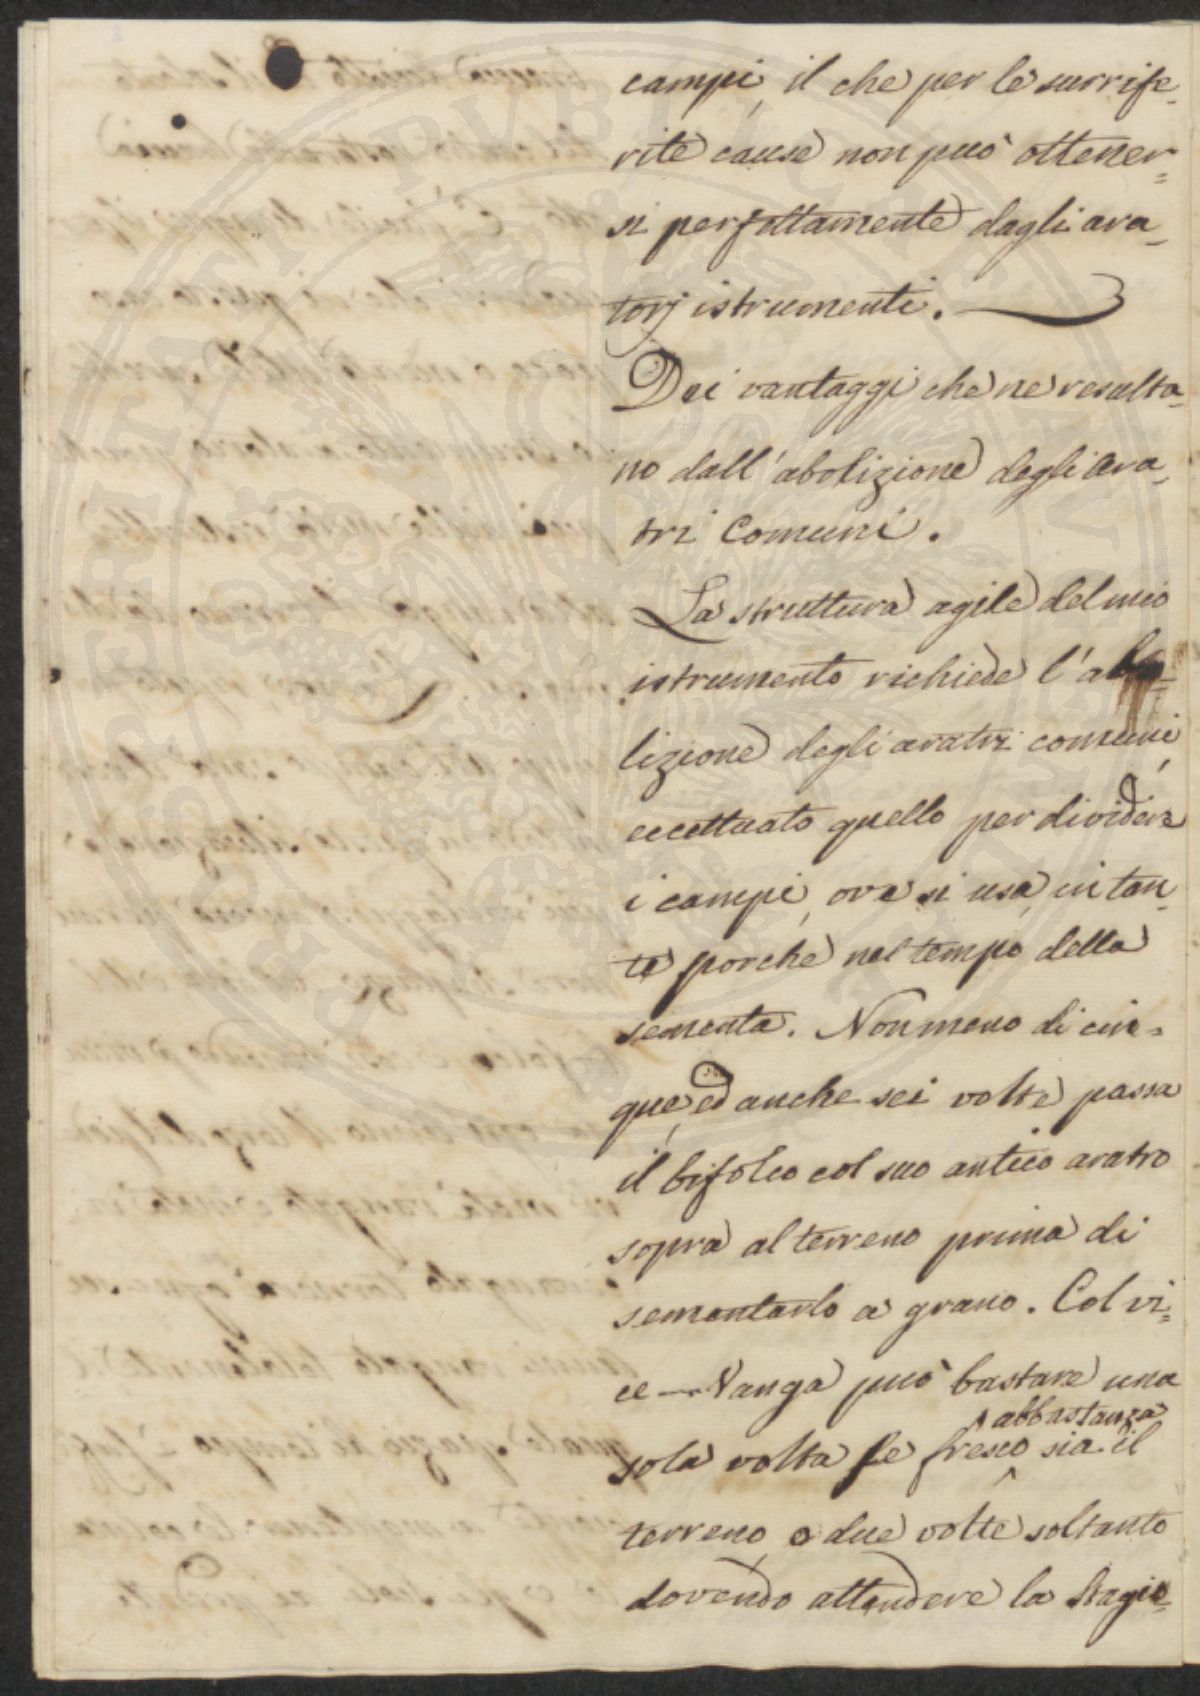 campi, il che per le surrife-
rite cause non può ottener=
si perfettamente dagli ara-
torj istrumenti.
Dei vantaggi che ne resulta=
no dall'abolizione degli Ara-
tri Comuni.
La struttura agile del mio
istrumento richiede l'abo-
lizione degli aratri comuni,
eccettuato quello per dividere
i campi, ove si usa, in tan-
te porche nel tempo della
sementa. Non meno di cin=
que, ed anche sei volte passa
il bifolco col suo antico aratro
sopra al terreno prima di
sementarlo a grano. Col vi=
ce-Vanga può bastare una
abbastanza
sola volta se fresco sia il
terreno, o due volte soltanto
dovendo attendere la Stagio=